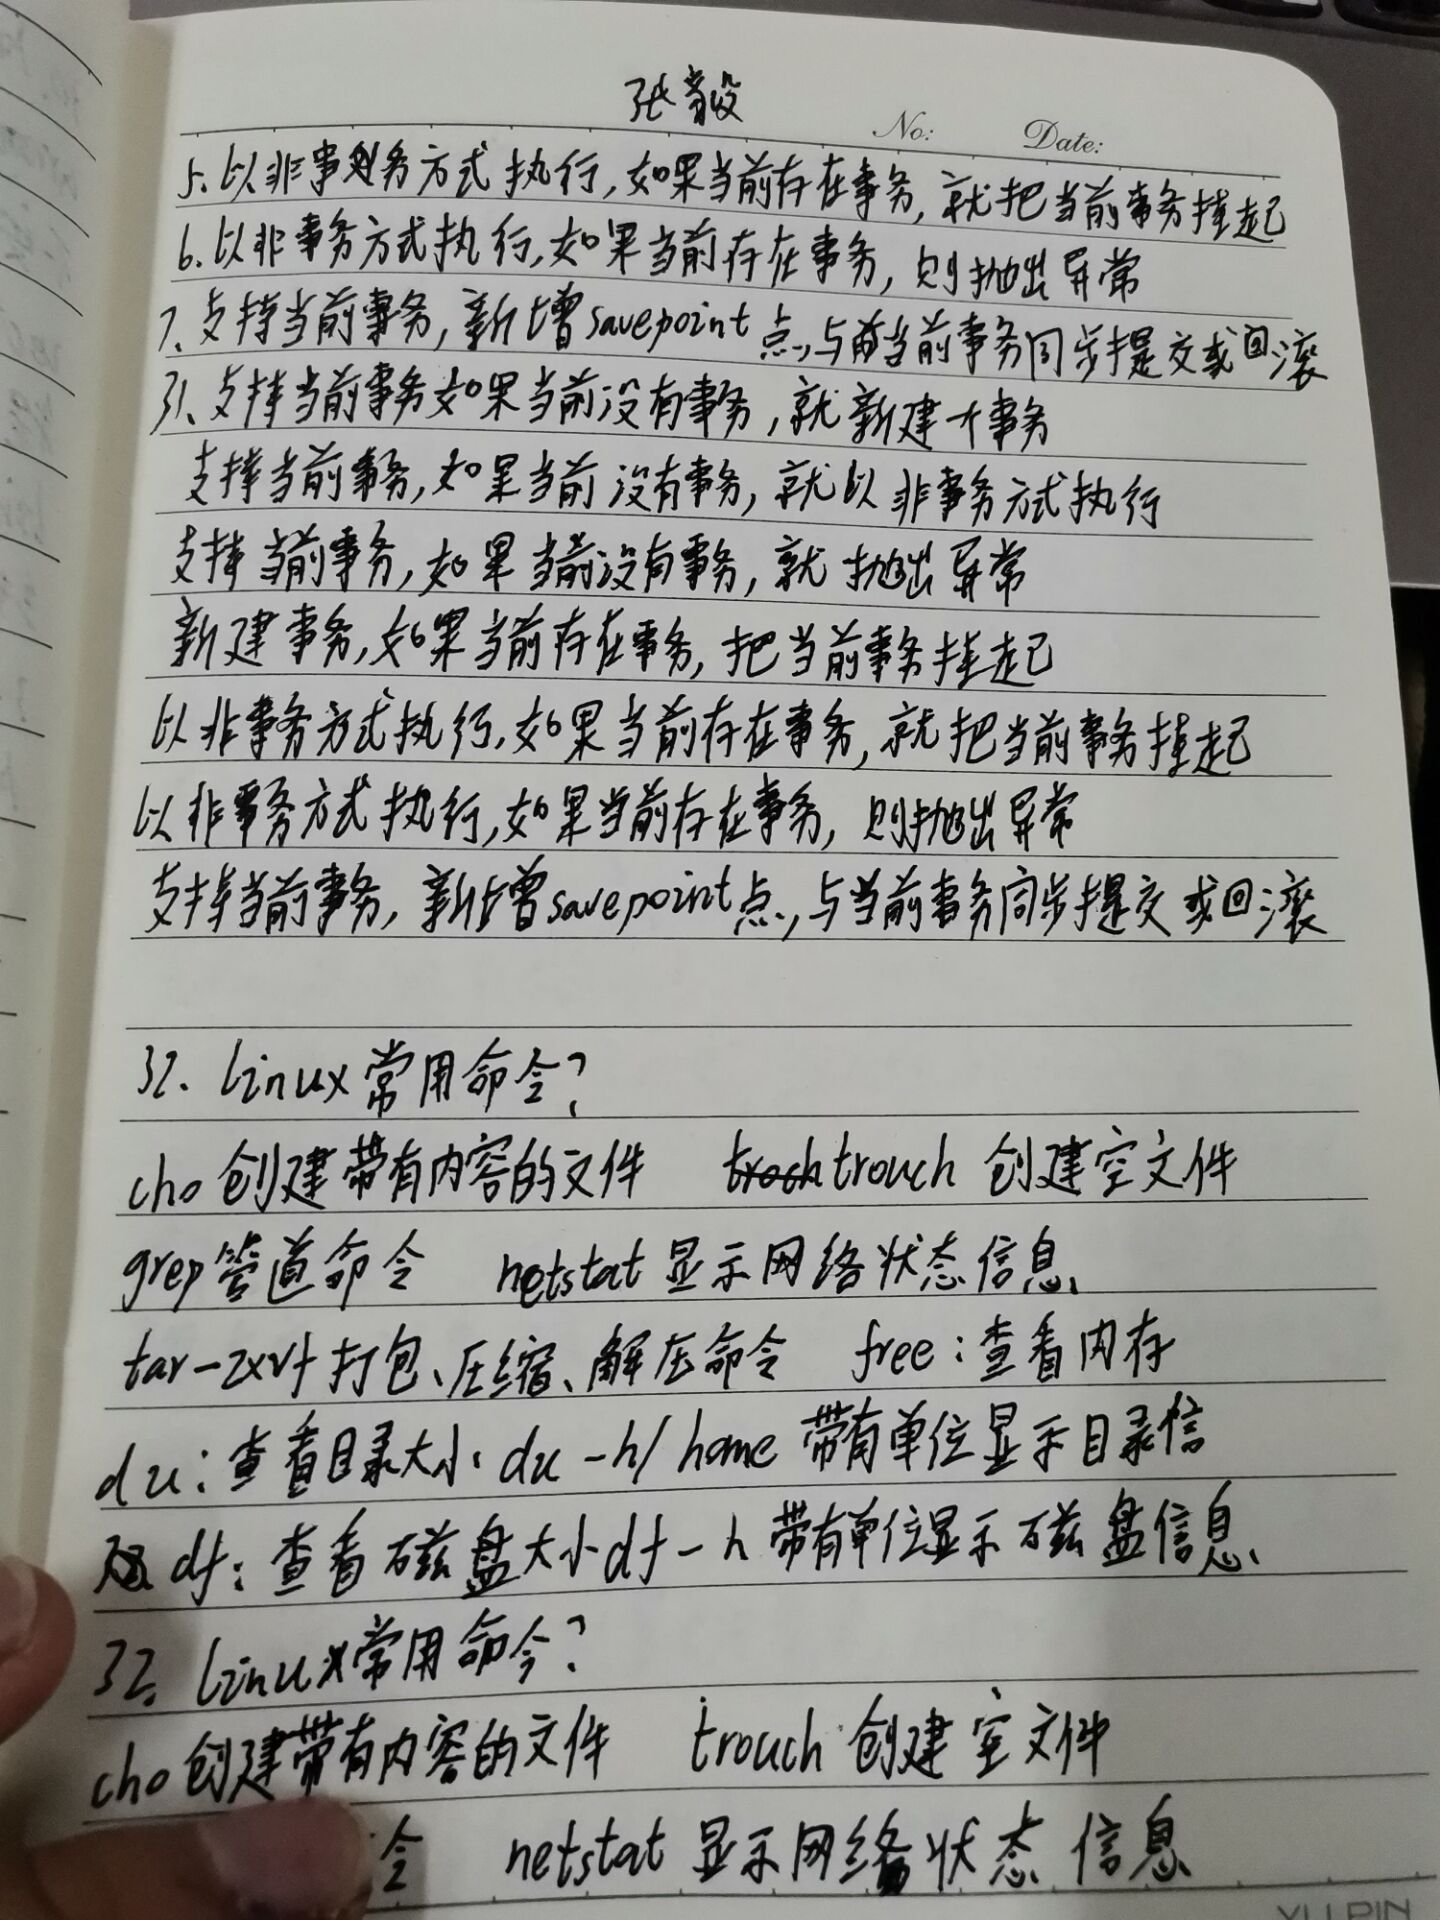 张毅
No: Date:
5. 以非事务方式执行,如果当前存在事务,就把当前事务挂起
6. 以非事务方式执行,如果当前存在事务,则抛出异常
7. 支持当前事务,新增savepoint点,与当前事务同步提交或回滚
31. 支持当前事务如果当前没有事务,就新建个事务
支持当前事务,如果当前没有事务,就以非事务方式执行
支持当前事务,如果当前没有事务,就抛出异常
新建事务,如果当前存在事务,把当前事务挂起
以非事务方式执行,如果当前存在事务,就把当前事务挂起
以非事务方式执行,如果当前存在事务,则抛出异常
支持当前事务,新增savepoint点,与当前事务同步提交或回滚
32. linux常用命令?
cho创建带有内容的文件 trouch 创建空文件
grep管道命令 netstat 显示网络状态信息
tar-zxvf 打包、压缩、解压命令 free:查看内存
du:查看目录大小 du -h/ home 带有单位显示目录信
df:查看磁盘大小df-h 带有单位显示磁盘信息
32. linux常用命令?
cho创建带有内容的文件 trouch 创建空文件
令 netstat 显示网络状态信息